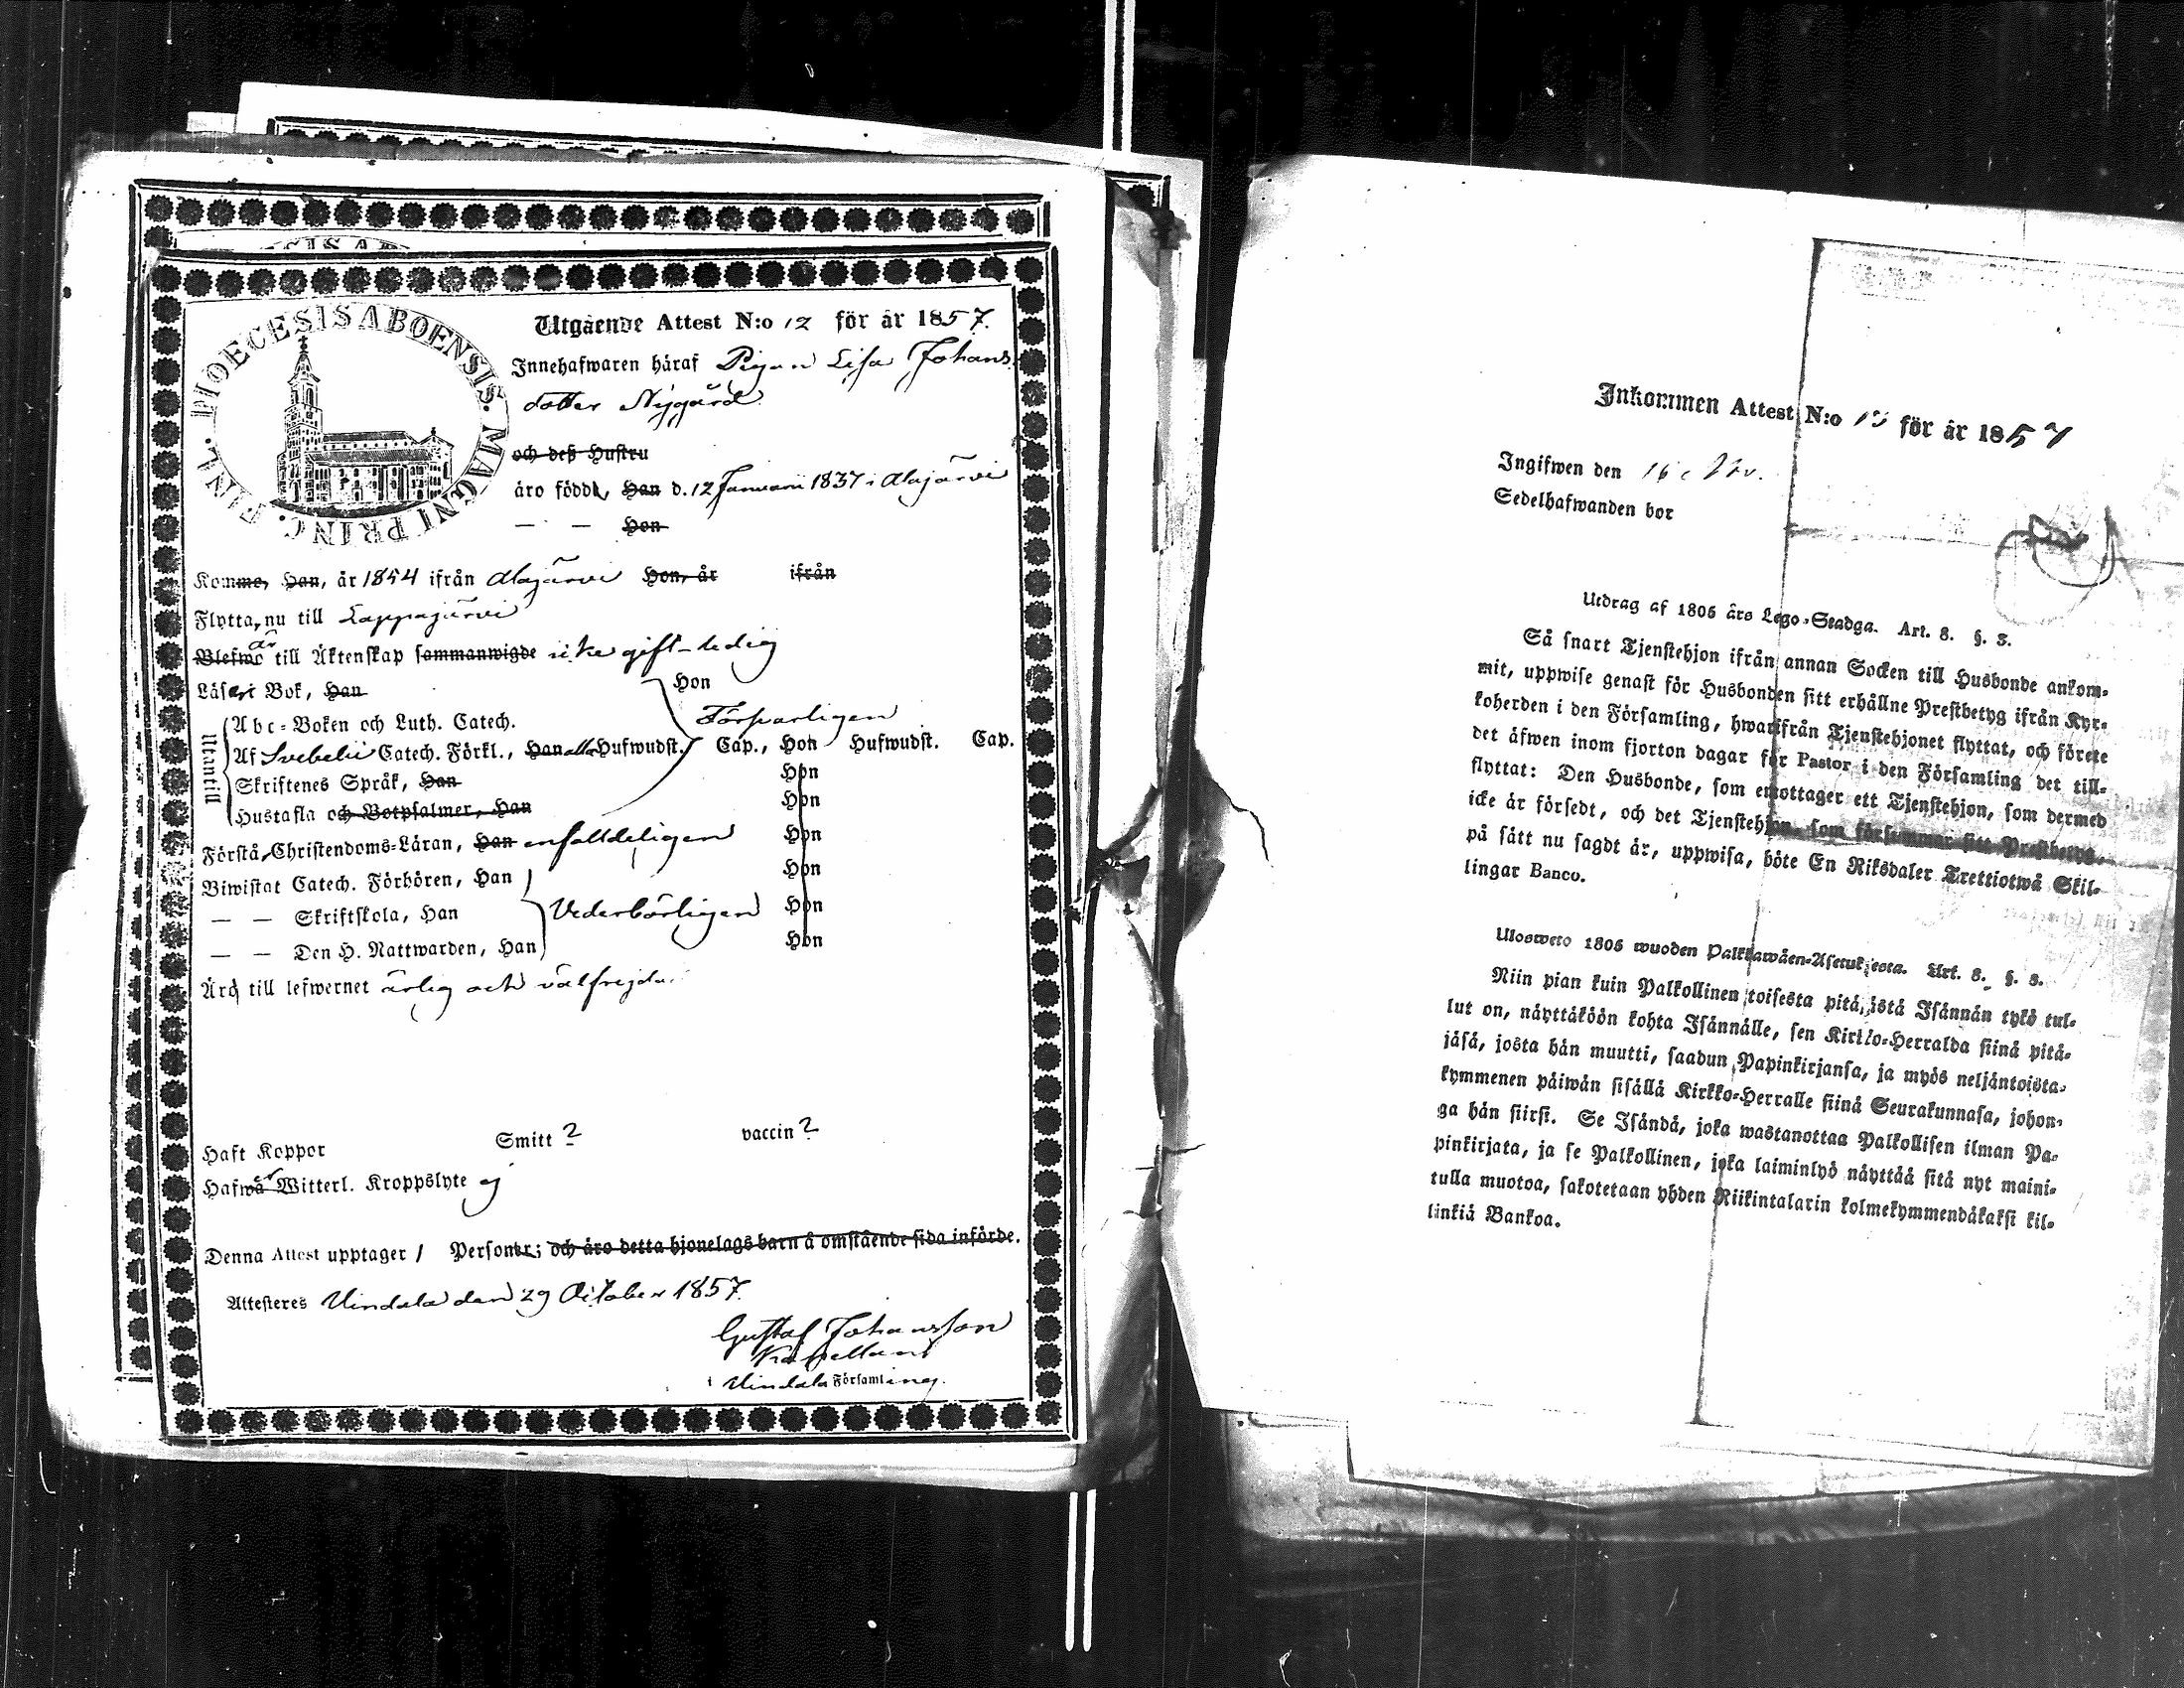 DIOECESIS ABOENSIS. MAGNI PRINC. FINL.
Utgående Attest N:o 12 för år 1857.
Innehafwaren häraf Pigan Lisa Johans
dotter Nygård
och deß Hustru
äro född, Han d. 12 Januarii 1837 i Alajärvi
— — Hon
Komme, Han, år 1854 ifrån Alajärvi Hon, år ifrån
Flytta, nu till Lappajärvi
är
Blefwo till Äktenskap sammanwigde icke gift - ledig
Läser i Bok, Han Hon
Abc-Boken och Luth. Catech. Försvarligen
Utantill
Af Svebelii Catech. Förkl., Han alla Hufwudst. Cap., Hon Hufwudst. Cap.
Skriftenes Språk, Han Hon
Hustafla och Botpsalmer, Han Hon
Förstå Christendoms-Läran, Han enfaldeligen Hon
Biwistat Catech. Förhören, Han Hon
— — Skriftskola, Han Vederbörligen Hon
— — Den H. Nattwarden, Han Hon
Äro till lefwernet ärlig och välfrejda.
Haft Koppor Smitt ? vaccin ?
Hafwa Witterl. Kroppslyte ej
Denna Attest upptager 1 Personer; och äro detta hjonelags barn å omstående sida införde.
Attesteres Vindala den 29 October 1857.
Gustaf Johansson
Kapellan
i Vindala Församling.
Inkommen Attest N:o för år 1857
Ingifwen den 16
Sedelhafwanden bor
Utdrag af 1805 års Lego-Stadga. Art. 8. §. 3.
Så snart Tjenstehjon ifrån annan Socken till Husbonde ankom-
mit, uppwise genast för Husbonden sitt erhållne Prestbetyg ifrån Kyr-
koherden i den Församling, hwarifrån Tjenstehjonet flyttat, och förete
det äfwen inom fjorton dagar för Pastor i den Församling det till-
flyttat: Den Husbonde, som emottager ett Tjenstehjon, som dermed
icke är försedt, och det Tjenstehjon, som försummar sitt Prestbetyg,
på sätt nu sagdt är, uppwisa, böte En Riksdaler Trettiotwå Skil-
lingar Banco.
Ulosweto 1805 wuoden Palkkawäen-Asetuksesta. Art. 8. §. 3.
Niin pian kuin Palkollinen toisesta pitäjästä Isännän tykö tul-
lut on, näyttäköön kohta Isännälle, sen Kirkko-Herralda siinä pitä-
jäsä, josta hän muutti, saadun Papinkirjansa, ja myös neljäntoista-
kymmenen päiwän sisällä Kirkko-Herralle siinä Seurakunnasa, johon-
ga hän siirsi. Se Isändä, joka wastanottaa Palkollisen ilman Pa-
pinkirjata, ja se Palkollinen, joka laiminlyö näyttää sitä nyt maini-
tulla muotoa, sakotetaan yhden Riikintalarin kolmekymmendäkaksi kil-
linkiä Bankoa.